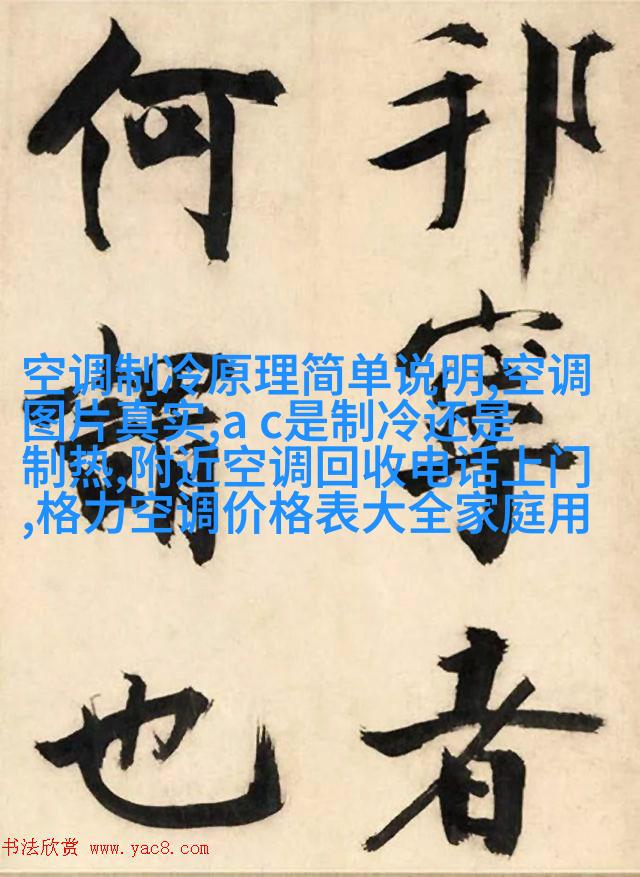 邦寧者
何也
空调制冷原理简单说明,空调
图片真实,a c是制冷还是
制热,附近空调回收电话上门
,格力空调价格表大全家庭用
书法欣赏 www.yac8.com